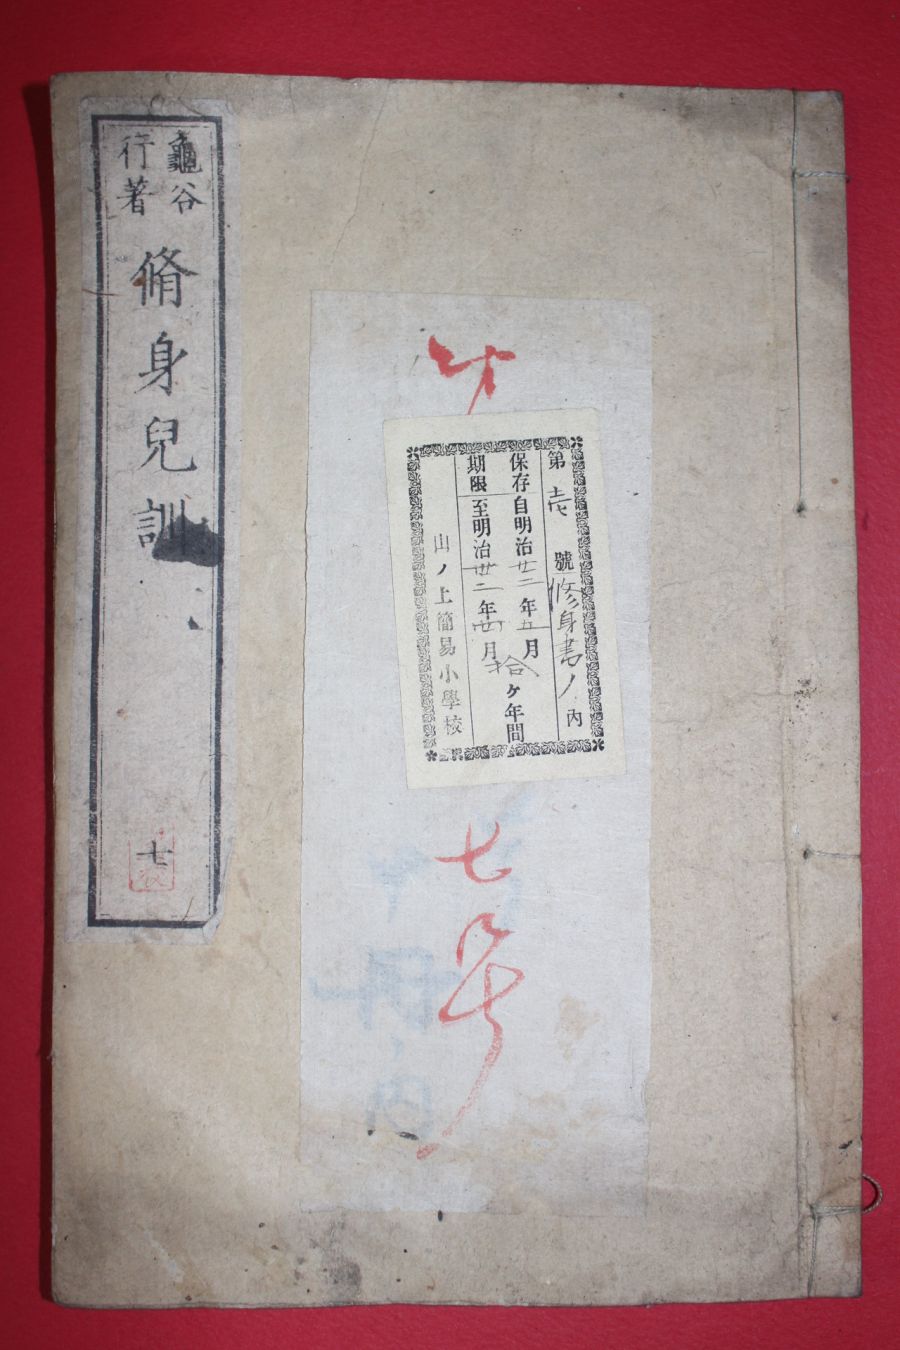 龜谷
行著
脩身兒訓
七
第七號
第七號修身書ノ内
保存自明治廿二年五月拾ケ年間
期限至明治卅二年四月
山ノ上簡易小學校